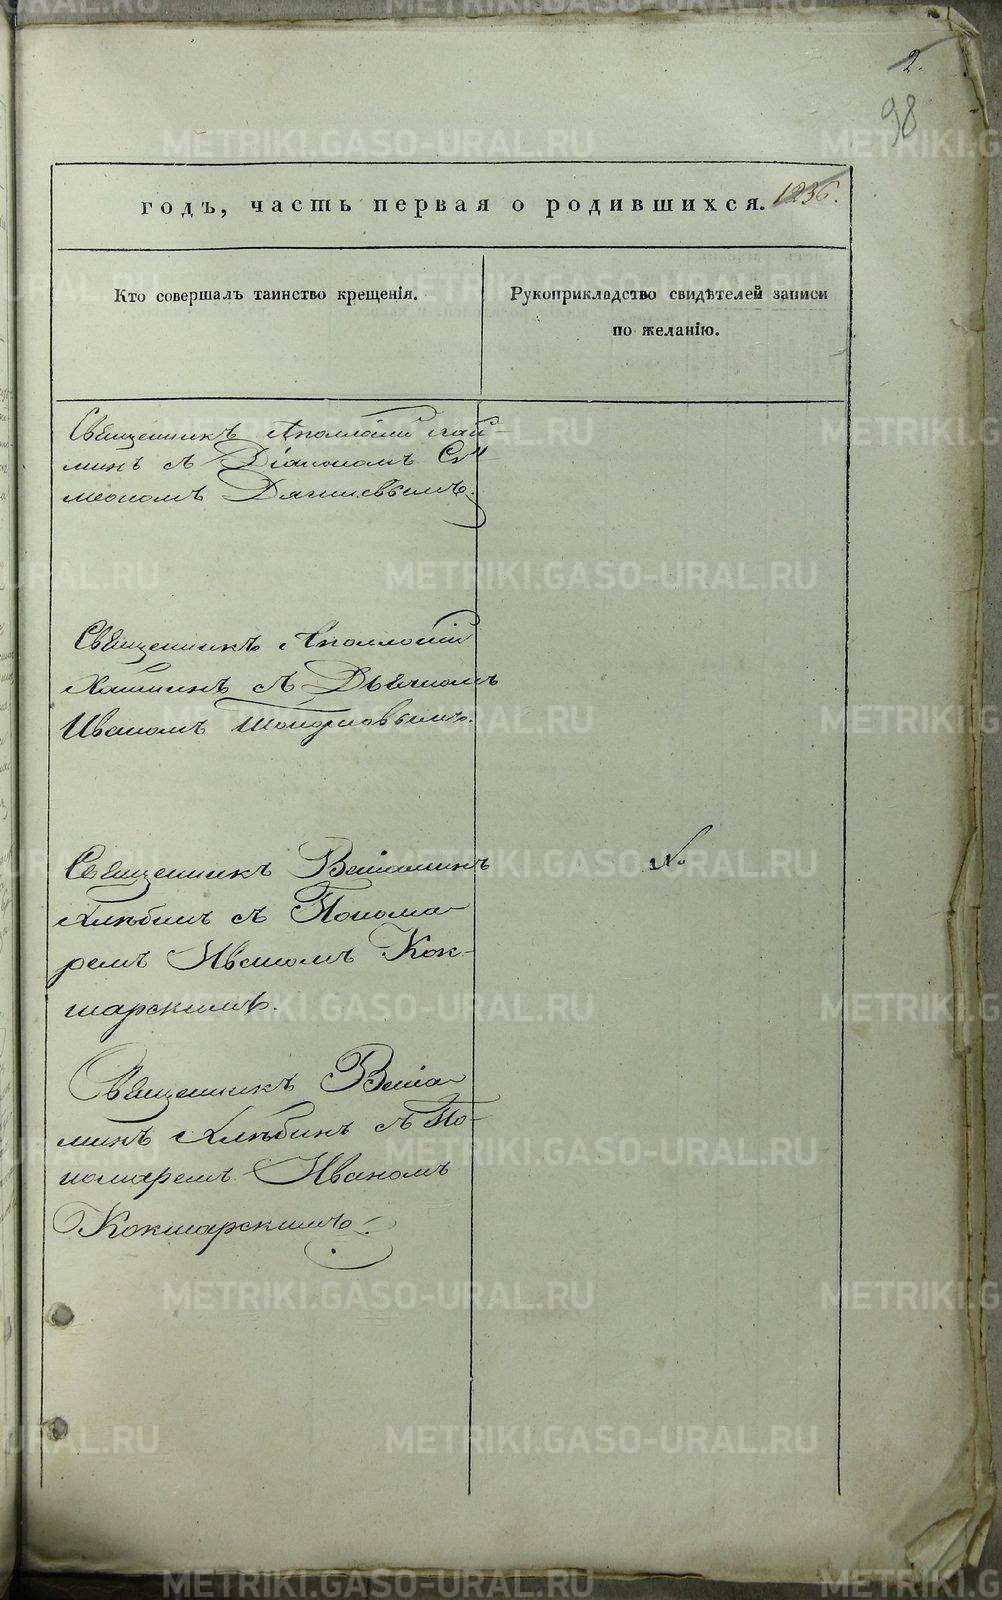 2.
98
годъ, часть первая о родившихся. 1236.
Кто совершалъ таинство крещенія.
Рукоприкладство свидѣтелей записи
по желанію.
Священникъ Аполлоній Хай-
минъ съ Діакономъ Си-
меономъ
Священникъ Аполлоній
съ Дьячкомъ
Иваномъ Топорковымъ.
Священникъ Веніаминъ
Хлѣбинъ съ Понома-
ремъ Иваномъ Кок-
шарскимъ.
Священникъ Веніа-
минъ Хлѣбинъ съ По-
номаремъ Иваномъ
Кокшарскимъ.
METRIKI.GASO-URAL.RU